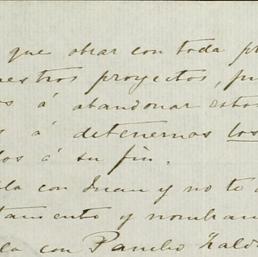 que obrar con toda pr
estros proyectos, pu
s á abandonar estos
s á detenernos los
dos á su fin.
la con Juan y no te
tamento y nombran
la con Pancho Vald